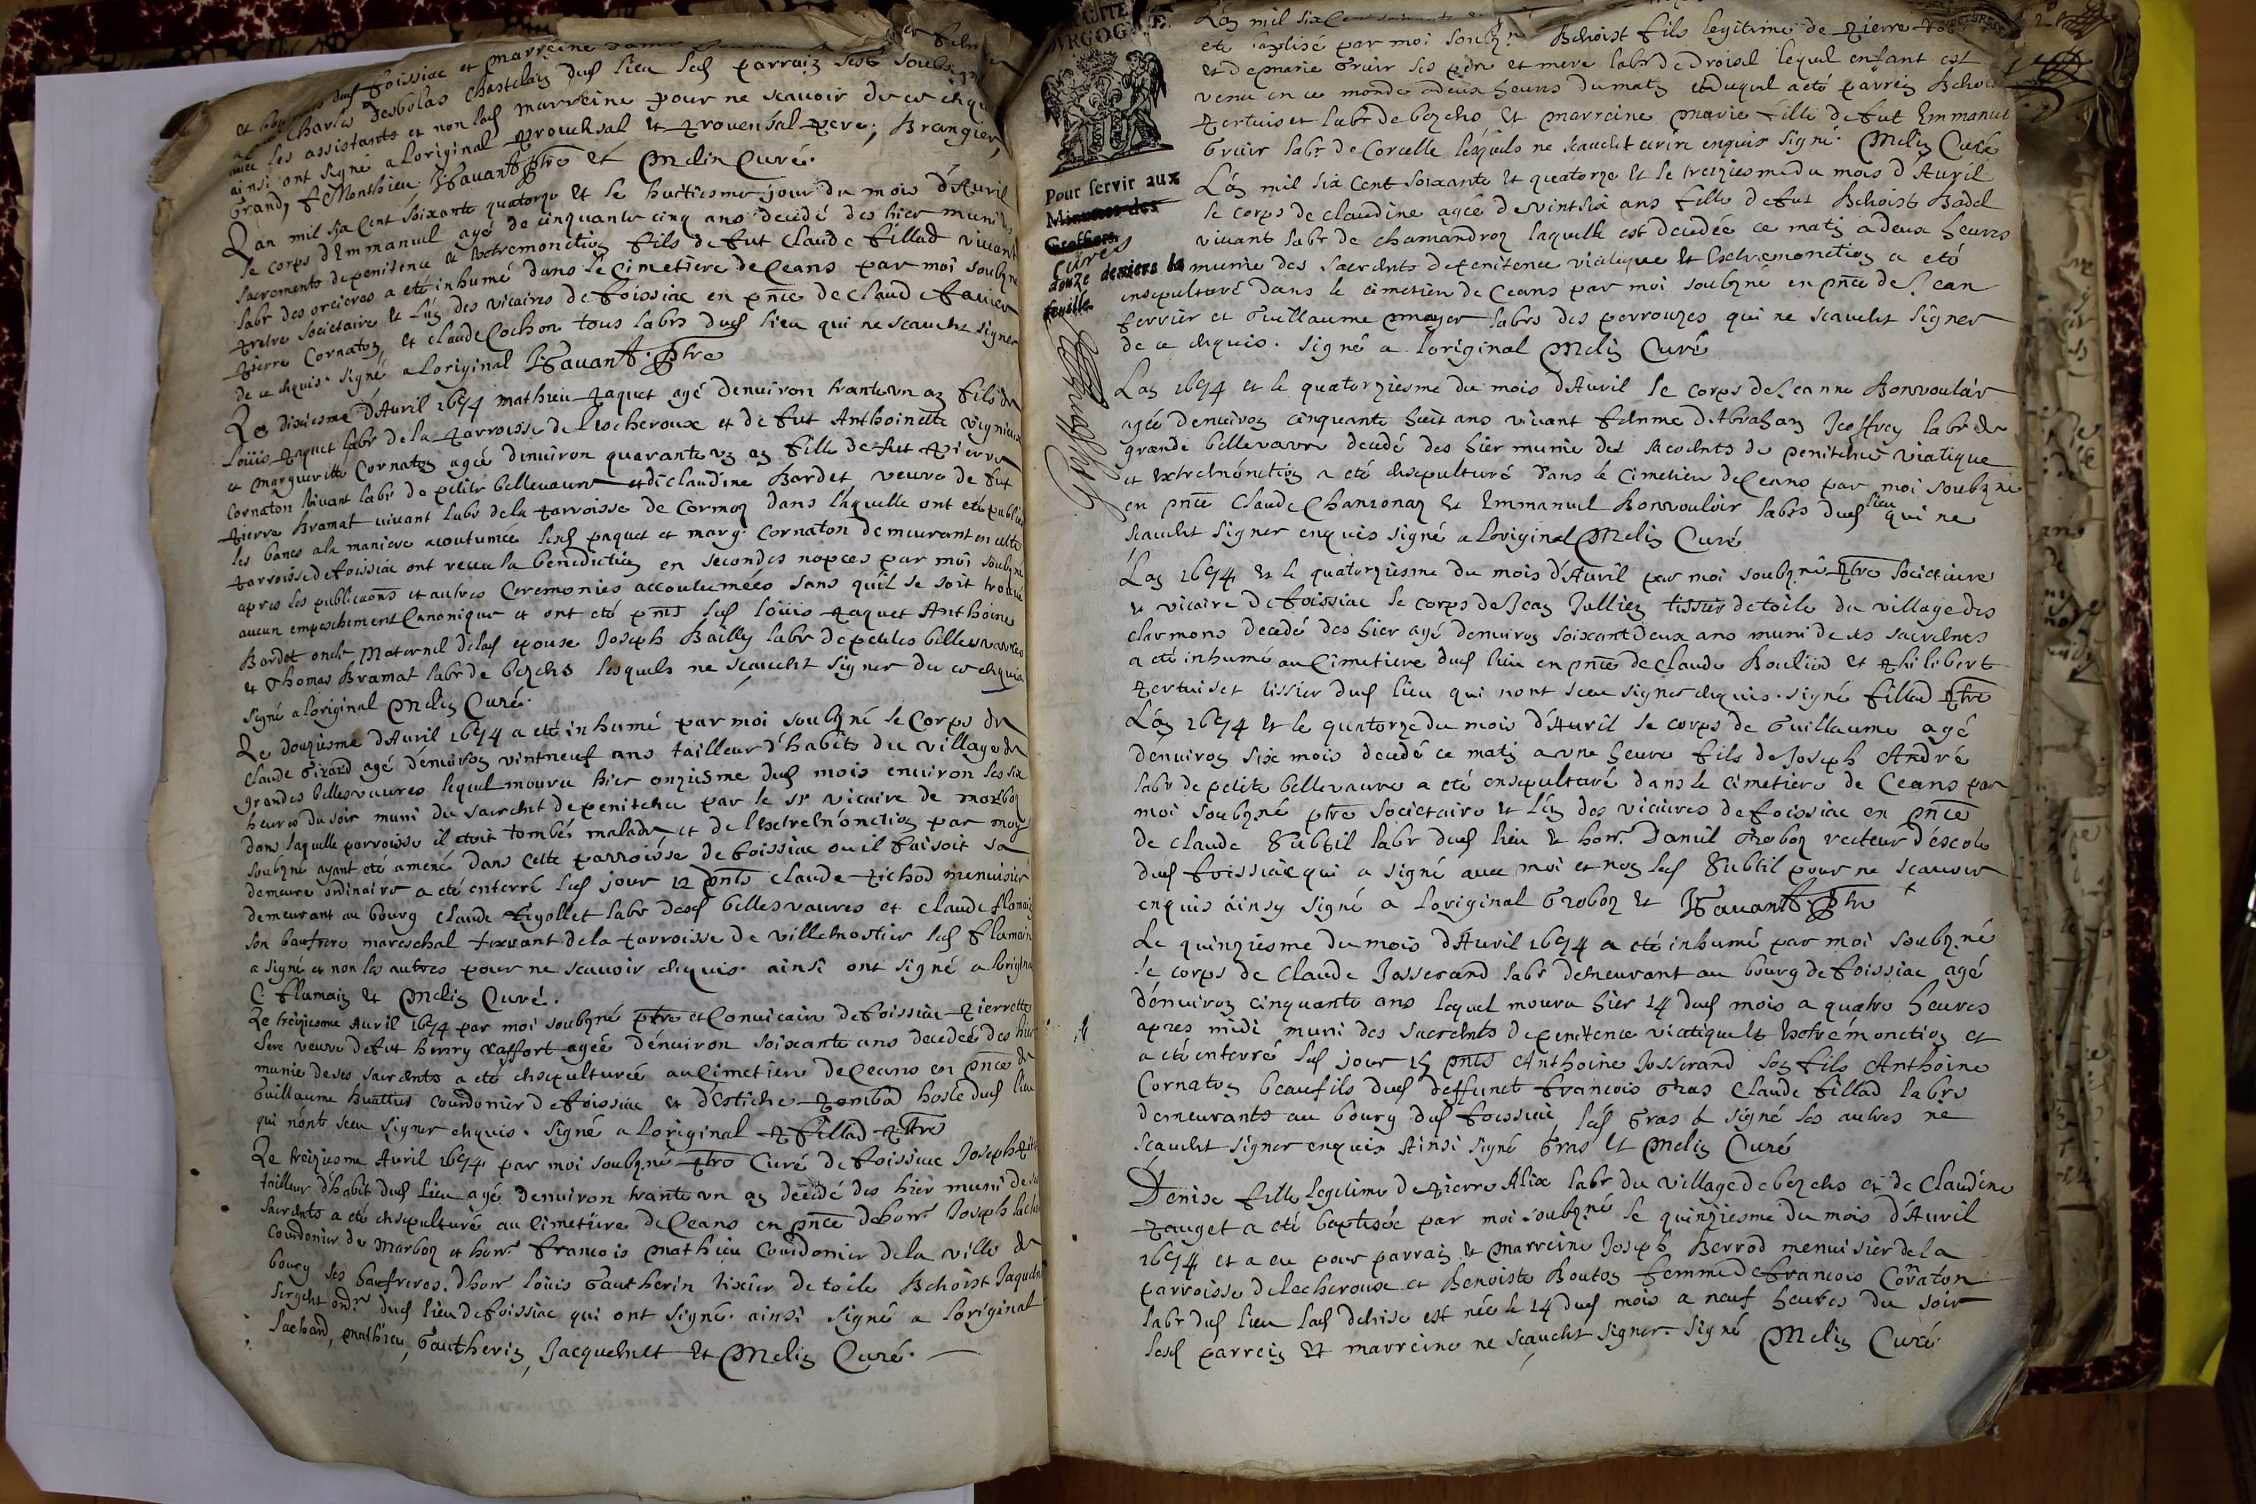 et marreine
Charles Desbolas Chastelain dud lieu led parrain sest soubsigné
avec les assistants et non lad marreine pour ne scavoir de ce enquis
ainsi ont signé a Loriginal Prouensal et Prouensal pere, Brangier,
Grand, F Monthieu, Hauant Ptre et Melin Curé.
Lan mil six Cent soixante quatorze et le huitiesme jour du mois d'Auril
le corps d'Emmanuel agé de cinquante cinq ans decedé des hier muni des
sacrements de penitence et Extremonction fils de fut Claude fillod viuant
labr des orcieres a eté inhumé dans le Cimetiere de Ceans par moi soubzne
Pretre societaire et lun des vicaires de foissiac en pnce de Claude fauier
Pierre Cornaton et Claude Cochon tous labrs dud lieu qui ne scauent signer
de ce enquis. signé a Loriginal Hauant Ptre
Le dixiesme d'Auril 1674 mathieu Paquet agé denuiron trante un an fils de
Loüis Paquet labr de la Parroisse de Lescheroux et de fut Anthoinette Vigneux
et marguerite Cornaton agée denuiron quarante un an fille de fut Pierre
Cornaton viuant labr de petite belleuaure et de Claudine Bardet, veuve de fut
Pierre Bramat viuant labr de la Parroisse de Cormoz dans laquelle ont eté publies
les bancs a la maniere acoutumée lesd paquet et marg. Cornaton demeurant en cette
Parroisse de foissiac ont receu la benediction en secondes nopces par moi soubzne
apres les publicaons et autres Ceremonies accoutumées sans quil se soit trouué
aucun empeschement Canonique et ont eté pnts led Loüis Paquet Anthoine
Bardet oncle Maternel de lad epouse Joseph Bailly labr de petites bellesvaures
et Thomas Bramat labr de bezehs lesquels ne scauent signer de ce enquis
signé a loriginal Melin Curé.
Le douziesme d'Auril 1674 a eté inhumé par moi soubzné le Corps de
Claude Girard agé denuiron vintneuf ans tailleur d'habits du village de
grandes bellesvaures lequel mouru hier onziesme dud mois enuiron les six
heures du soir muni du sacrement de penitence par le sr vicaire de marboz
dans laquelle parroisse il etoit tombé malade et de l'extremonction par moy
soubzné ayant eté amené dans cette parroisse de foissiac ou il faisoit sa
demeure ordinaire a eté enterré led jour 12 pnts Claude Pichod menuisier
demeurant au bourg Claude Rigollet labr desd bellesvaures et Claude flamain
son baufrere mareschal taixant de la Parroisse de Villemostier led flamain
a signé et non les autres pour ne scauoir enquis. ainsi ont signé a loriginal
C. flamain et Melin Curé.
Le treiziesme Auril 1674 par moi soubzné ptre et Conuicaire de foissiac Pierrette
veuve de fut henry Raffort agée denuiron soixante ans decedée des hier
munie de ses sacrents a eté ensepulturée au Cimetiere de Ceans en pnce de
Guillaume courdonier de foissiac et d'Estiene hoste dud lieu
qui nont sceu signer enquis. signé a Loriginal P fillod Ptre
Le treiziesme Auril 1674. par moi soubzné Ptre Curé de foissiac Joseph
tailleur d'habit dud Lieu agé denuiron trante un an decedé des hier muni de ses
Sacrents a eté ensepulturé au Cimetiere de Ceans en pnce de hon. Joseph
Courdonier de Marboz et hon. francois Mathieu Courdonier de la ville de
bourg ses baufreres. d'hon. loüis Gautherin tixeur de toile Benoist Jaquenet
sergent ord. dud lieu de foissiac qui ont signé. ainsi signé a loriginal
Lachard, Mathieu, Gautherin, Jacquenet et Melin Curé.
BOURGOGNE
Pour servir aux
Minuttes des
Greffiers
Curés
douze deniers la
feuille
Lan mil six Cent soixante
eté baptisé par moi soubzné Benoist fils legitime de Pierre
et de Marie Gruir ses pere et mere labr de Droisel lequel enfant est
venu en ce monde a deux heures du matin et duquel a eté parrein Benoist
Pertuiset labr de bezehs et marreine Marie fille de fut Emmanuel
Gruir labr de Corcelle lesquels ne scauent ecrire enquis signé. Melin Curé
Lan mil six Cent soixante et quatorze et le treiziesme du mois d'Auril
le corps de Claudine agée de vint six ans fille de fut Benoist Badel
viuant labr de chamandroz laquelle est decedée ce matin a deux heures
munie des Sacrents de penitence viatique et Extremonction a eté
ensepulturé dans le cimetiere de Ceans par moi soubzné en pnce de Jean
ferrier et Guillaume Moyer labrs des perrouzes qui ne scauent signer
de ce enquis. signé a Loriginal Melin Curé
Lan 1674 et le quatorziesme du mois d'Auril le corps de Jeanne Bonvouloir
agée denuiron cinquante huit ans viuant femme d'Abraham Jeoffrey labr de
grande bellevaure decedé des hier munie des sacrents de penitence viatique
et Extremonction a eté ensepulturé dans le Cimetiere de Ceans par moi soubzné
en pnce Claude Chanronan et Emmanuel Bonvouloir labrs dud lieu qui ne
scauent signer enquis signé a Loriginal Melin Curé
Lan 1674 et le quatorziesme du mois d'Auril par moi soubzné Ptre societaire
et vicaire de foissiac le corps de Jean Jullien tissier de toile du village des
clarmons decedé des hier agé denuiron soixant deux ans muni de ses sacrents
a eté inhumé au Cimetiere dud lieu en pnce de Claude Boulliod et Philibert
Pertuiset tissier dud lieu qui nont sceu signer enquis. signé fillod Ptre
Lan 1674 et le quatorze du mois d'Auril le corps de Guillaume agé
denuiron six mois decedé ce matin a une heure fils de Joseph André
labr de petite bellevaure a eté ensepulturé dans le cimetiere de Ceans par
moi soubzné ptre societaire et lun des vicaires de foissiac en pnce
de Claude Subtil labr dud lieu et hon. Daniel Groboz recteur d'escole
dud foissiac qui a signé avec moi et non led Subtil pour ne scauoir
enquis ainsy signé a Loriginal Groboz et Hauant Ptre
Le quinziesme du mois d'Auril 1674 a eté inhumé par moi soubzné
le corps de Claude Josserand labr demeurant au bourg de foissiac agé
denuiron cinquante ans lequel mouru hier 14 dud mois a quatre heures
apres midi muni des sacrents de penitence viatique et Extremonction et
a eté enterré led jour 15 pnts Anthoine Josserand son fils Anthoine
Cornaton beaufils dud deffunct francois Gras Claude fillod labrs
demeurants au bourg dud foissiac led Gras a signé les autres ne
scauent signer enquis Ainsi signé Gras et Melin Curé
Denise fille legitime de Pierre Alix labr du village de bezehs et de Claudine
Pauget a eté baptisée par moi soubzné le quinziesme du mois d'Auril
1674 et a eu pour parrain et marreine Joseph Berrod menuisier de la
parroisse de Lecheroux et Benoiste Bouton femme de francois Cornaton
labr dud lieu lad denise est née le 14 dud mois a neuf heures du soir
lesd parrein et marreine ne scauent signer. signé Melin Curé.